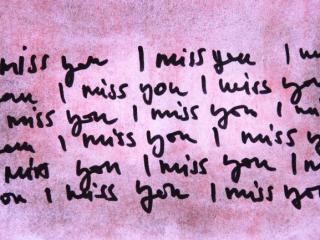 miss you I miss you I m
I miss you I miss you
miss you I miss you I mi
I miss you I miss
miss you I miss you I m
I miss you I miss you